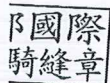 國際
騎縫章